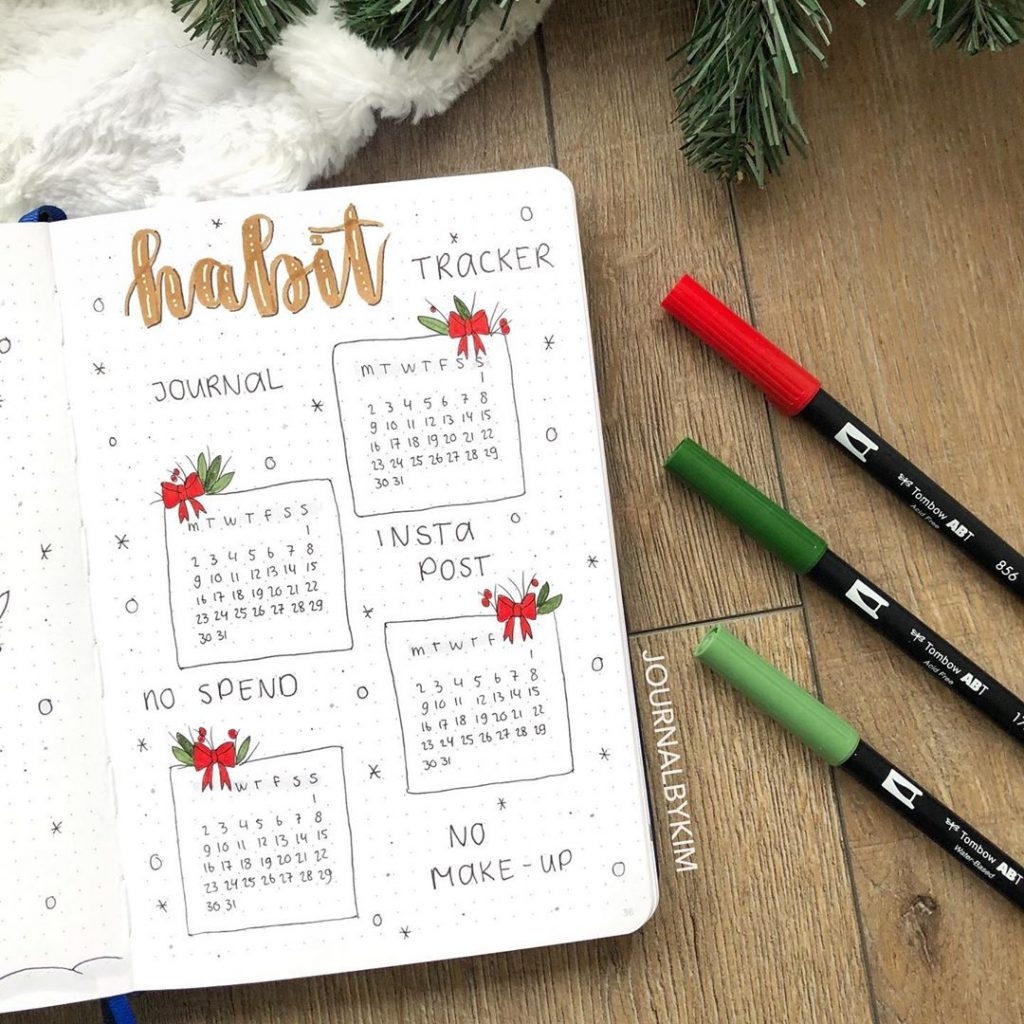 habit TRACKER
JOURNAL
M T W T F S S
1
2 3 4 5 6 7 8
9 10 11 12 13 14 15
16 17 18 19 20 21 22
23 24 25 26 27 28 29
30 31
M T W T F S S
1
2 3 4 5 6 7 8
9 10 11 12 13 14 15
16 17 18 19 20 21 22
23 24 25 26 27 28 29
30 31
INSTA
POST
NO SPEND
M T W T F
1
2 3 4 5 6 7 8
9 10 11 12 13 14 15
16 17 18 19 20 21 22
23 24 25 26 27 28 29
30 31
W T F S S
1
2 3 4 5 6 7 8
9 10 11 12 13 14 15
16 17 18 19 20 21 22
23 24 25 26 27 28 29
30 31
NO
MAKE-UP
36
JOURNALBYKIM
Tombow ABT
Acid Free
856
Tombow ABT
Acid Free
Tombow ABT
Water-Based